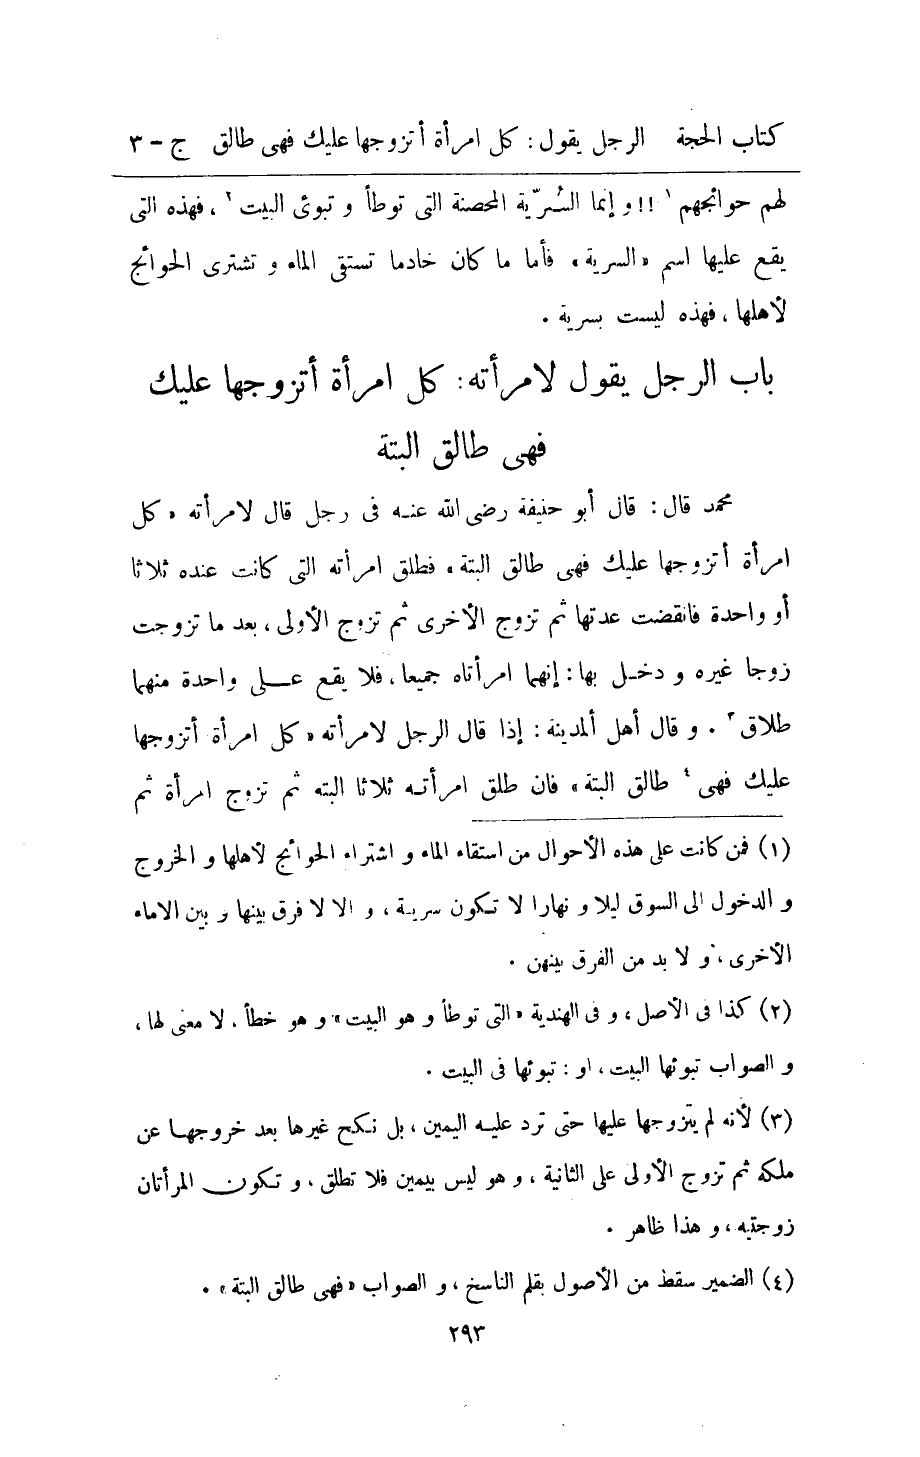 كتاب الحجة الرجل يقول : كل امرأة أتزوجها عليك فهى طالق ج - ٣
لهم حوائجهم ١ !! و إنما السُّرِّية المحصنة التى توطأ و تبوئ البيت ٢ ، فهذه التى
يقع عليها اسم « السرية » فأما ما كان خادما تستقى الماء و تشترى الحوائج
لأهلها ، فهذه ليست بسرية .
باب الرجل يقول لامرأته : كل امرأة أتزوجها عليك
فهى طالق البتة
محمد قال : قال أبو حنيفة رضى الله عنه فى رجل قال لامرأته « كل
امرأة أتزوجها عليك فهى طالق البتة » فطلق امرأته التى كانت عنده ثلاثا
أو واحدة فانقضت عدتها ثم تزوج الأخرى ثم تزوج الأولى ، بعد ما تزوجت
زوجا غيره و دخل بها : إنهما امرأتاه جميعا ، فلا يقع على واحدة منهما
طلاق ٣ . و قال أهل ألمدينة : إذا قال الرجل لامرأته « كل امرأة أتزوجها
عليك فهى ٤ طالق البتة » فان طلق امرأته ثلاثا البته ثم تزوج امرأة ثم
(١) فمن كانت على هذه الأحوال من استقاء الماء و اشتراء الحوائج لأهلها و الخروج
و الدخول الى السوق ليلا و نهارا لا تكون سرية ، و الا لا فرق بينها و بين الاماء
الأخرى ، و لا بد من الفرق بينهن .
(٢) كذا فى الأصل ، و فى الهندية « التى توطأ و هو البيت » و هو خطأ ، لا معنى لها ،
و الصواب تبوئها البيت ، او : تبوئها فى البيت .
(٣) لأنه لم يتزوجها عليها حتى ترد عليه اليمين ، بل نكح غيرها بعد خروجها عن
ملكه ثم تزوج الأولى على الثانية ، و هو ليس بيمين فلا تطلق ، و تكون المرأتان
زوجتيه ، و هذا ظاهر .
(٤) الضمير سقط من الأصول بقلم الناسخ ، و الصواب « فهى طالق البتة » .
٢٩٣